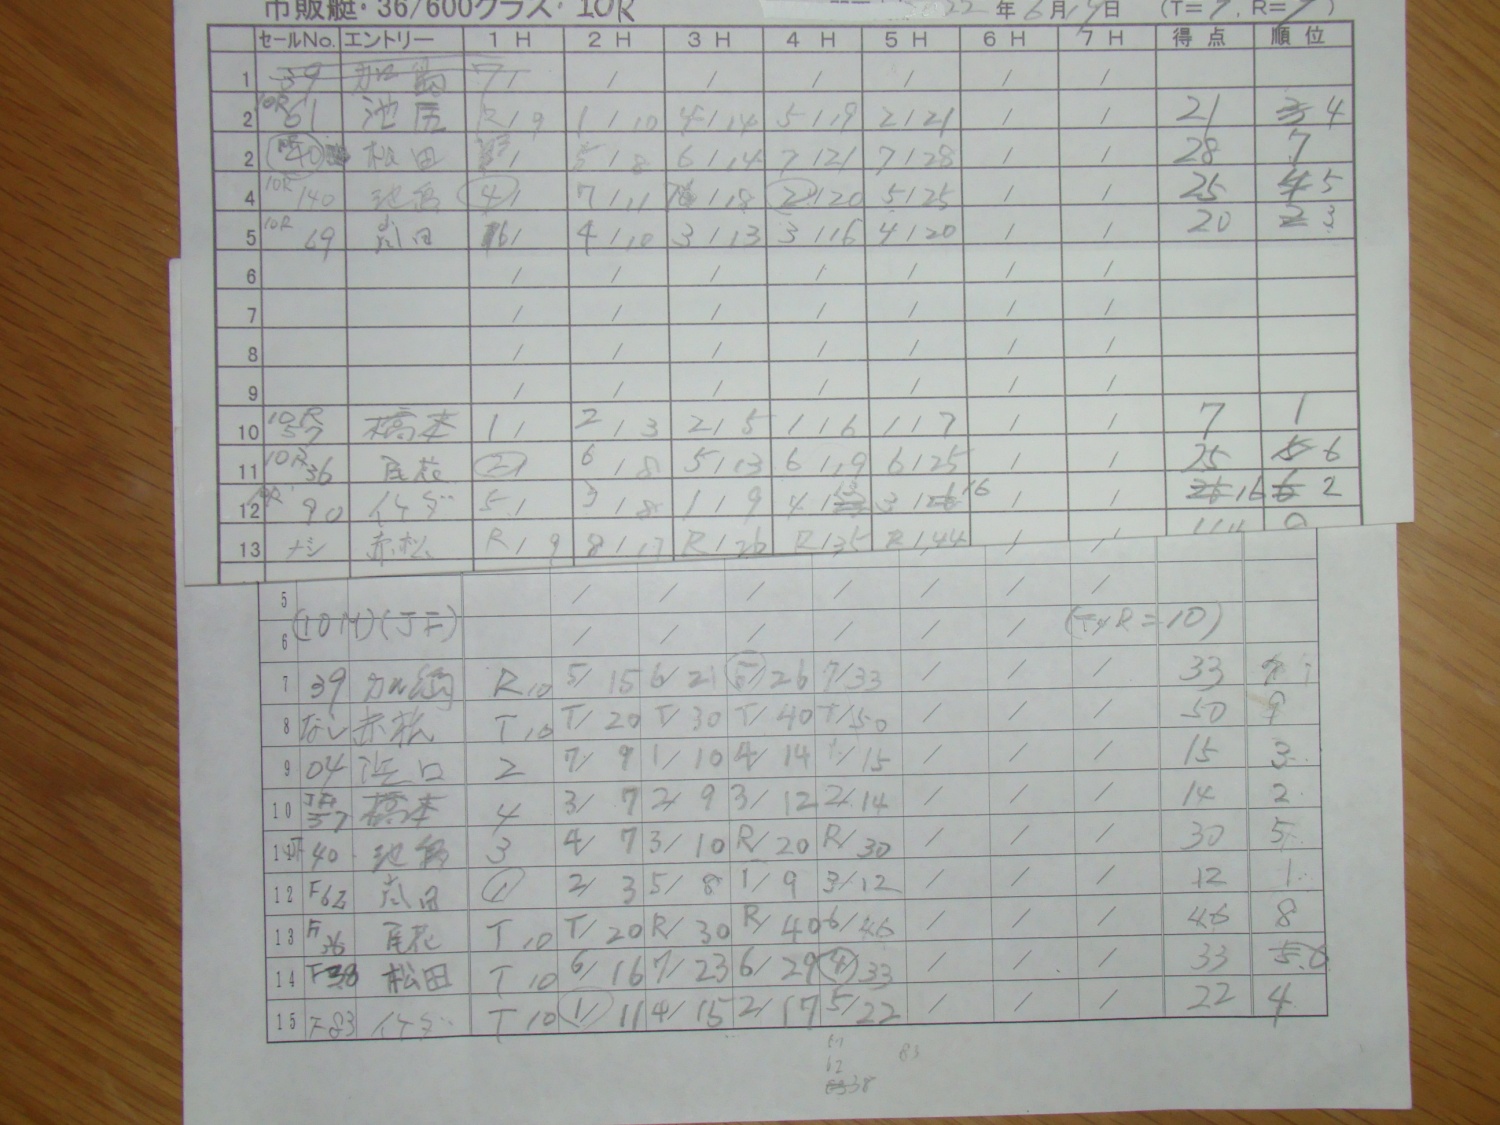 市販艇・36/600クラス・10R 22 年 6月19日 (T=9, R=9)
セールNo. エントリー 1H 2H 3H 4H 5H 6H 7H 得点 順位
1 39 / / / / / /
2 10R 61 池尻 R/9 1/10 4/14 5/19 2/21 / / 21 3 4
2 40 松田 / 5/8 6/14 7/21 7/28 / / 28 7
4 10R 140 4/ 7/11 /18 2/20 5/25 / / 25 4 5
5 10R 69 高田 6/ 4/10 3/13 3/16 4/20 / / 20 2 3
6 / / / / / / /
7 / / / / / / /
8 / / / / / / /
9 / / / / / / /
10 10R 57 橋本 1/ 2/3 2/5 1/6 1/7 / / 7 1
11 10R 36 尾花 2/ 6/8 5/13 6/19 6/25 / / 25 5 6
12 90 イケダ 5/ 3/8 1/9 4/13 3/16 / / 16 6 2
13 ナシ 赤松 R/9 8/17 R/26 R/35 R/44 / /
5 / / / / / / /
6 (10M)(JF) / / / / / / / (T,R=10)
7 39 R/10 5/15 6/21 5/26 7/33 / / 33 7
8 なし 赤松 T/10 T/20 T/30 T/40 T/50 / / 50 9
9 04 浜口 2 7/9 1/10 4/14 1/15 / / 15 3
10 JF 57 橋本 4 3/7 2/9 3/12 2/14 / / 14 2
11 40 3 4/7 3/10 R/20 R/30 / / 30 5
12 F62 高田 1 2/3 5/8 1/9 3/12 / / 12 1
13 F 36 尾花 T/10 T/20 R/30 R/40 6/46 / / 46 8
14 F38 松田 T/10 6/16 7/23 6/29 4/33 / / 33 5.6
15 F83 イケダ T/10 1/11 4/15 2/17 5/22 / / 22 4
83
62
38